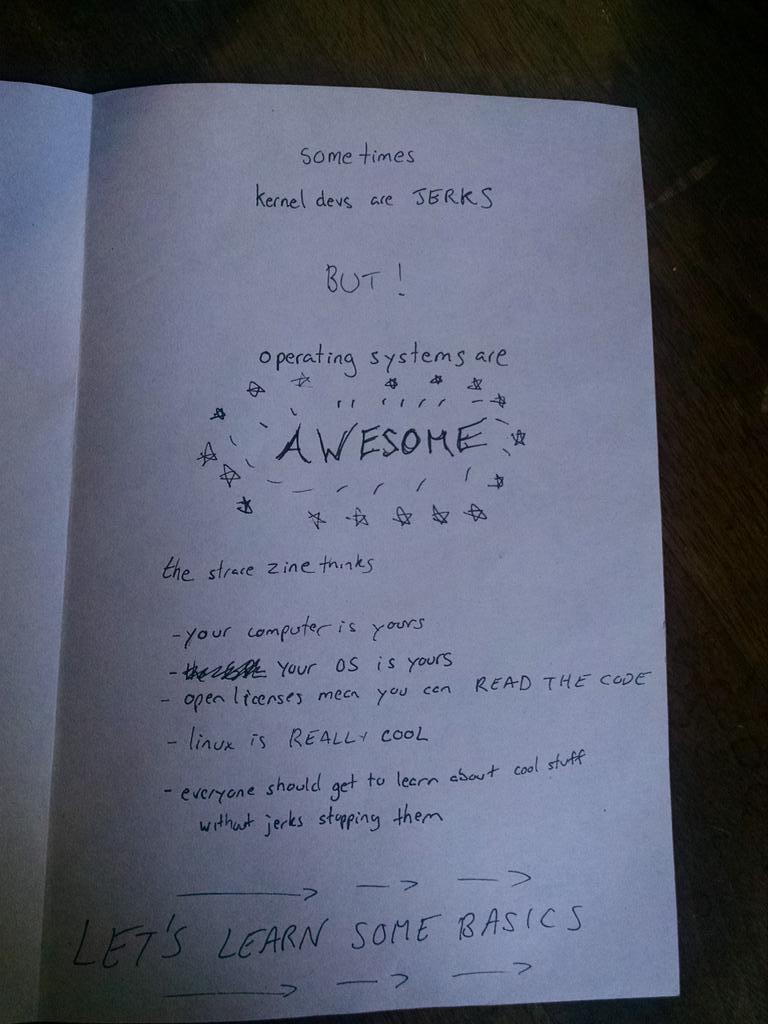 sometimes
kernel devs are JERKS
BUT!
operating systems are
AWESOME
the strace zine thinks
- your computer is yours
- your OS is yours
- open licenses mean you can READ THE CODE
- linux is REALLY COOL
- everyone should get to learn about cool stuff
without jerks stopping them
LET'S LEARN SOME BASICS